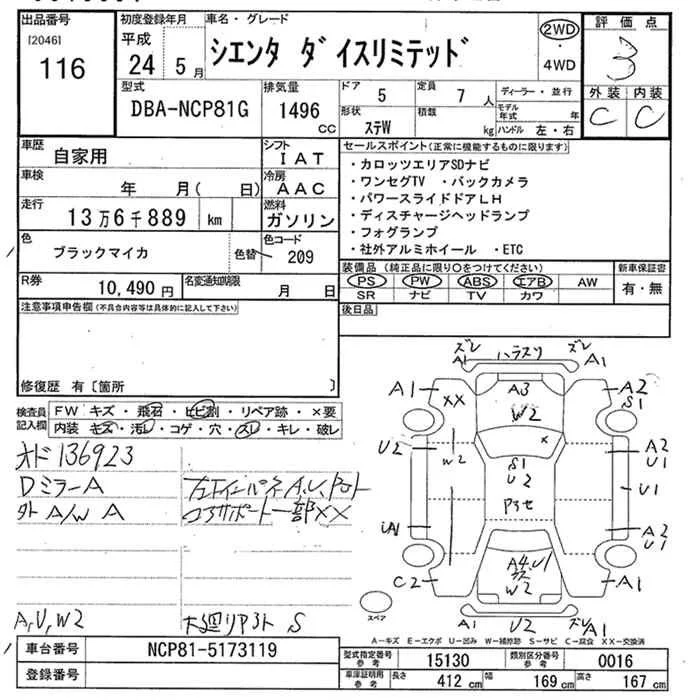 出品番号
[2046]
116
初度登録年月
平成
24 5月
車名・グレード
シエンタ ダイスリミテッド
2WD
・
4WD
評価点
3
外装 内装
C C
型式
DBA-NCP81G
排気量
1496
CC
ドア
5
定員
7人
形状
ステW
積類
kg
ディーラー・並行
モデル年式 年
ハンドル 左・右
車歴
自家用
シフト
IAT
車検
年 月( 日)
冷房
AAC
走行
13万6千889 km
燃料
ガソリン
色
ブラックマイカ
色替
色コード
209
R券
10,490円
名変通知期限
月 日
セールスポイント(正常に機能するものに限ります)
・カロッツエリアSDナビ
・ワンセグTV ・バックカメラ
・パワースライドドアLH
・ディスチャージヘッドランプ
・フォグランプ
・社外アルミホイール ・ETC
装備品(純正品に限り○をつけてください)
PS PW ABS エアB AW
SR ナビ TV カワ
新車保証書
有・無
後日品
注意事項申告欄(不具合内容等は具体的に記入して下さい)
修復歴 有〔箇所 〕
検査員記入欄
FW キズ・飛石・ヒビ割・リペア跡・×要
内装 キズ・汚レ・コゲ・穴・スレ・キレ・破レ
オド136923
DミラーA
外 A/W A
左下インパネA,U,アロト
コアサポート一部XX
A,U,W2
下廻りアロト S
ズレ
A1
ハラスリ
ズレ
A1
A1
XX
A3
W2
A2
S1
×
U2
W2
S1
U2
A2
U1
U1
アロセ
A1
A2
U1
C2
A4.U1
W2
A1
スペア
A1
U2
ズレ
A1
A-キズ E-エクボ U-凹み W-補修跡 S-サビ C-腐食 XX-交換済
車台番号
NCP81-5173119
登録番号
型式指定番号
参考
15130
類別区分番号
参考
0016
車庫証明用
参考
長さ
412 cm
幅
169 cm
高さ
167 cm